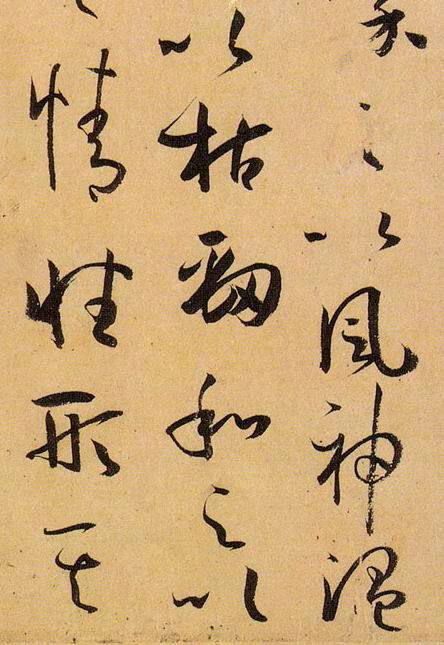 之以風神溫
以枯勁和之以
情性形其